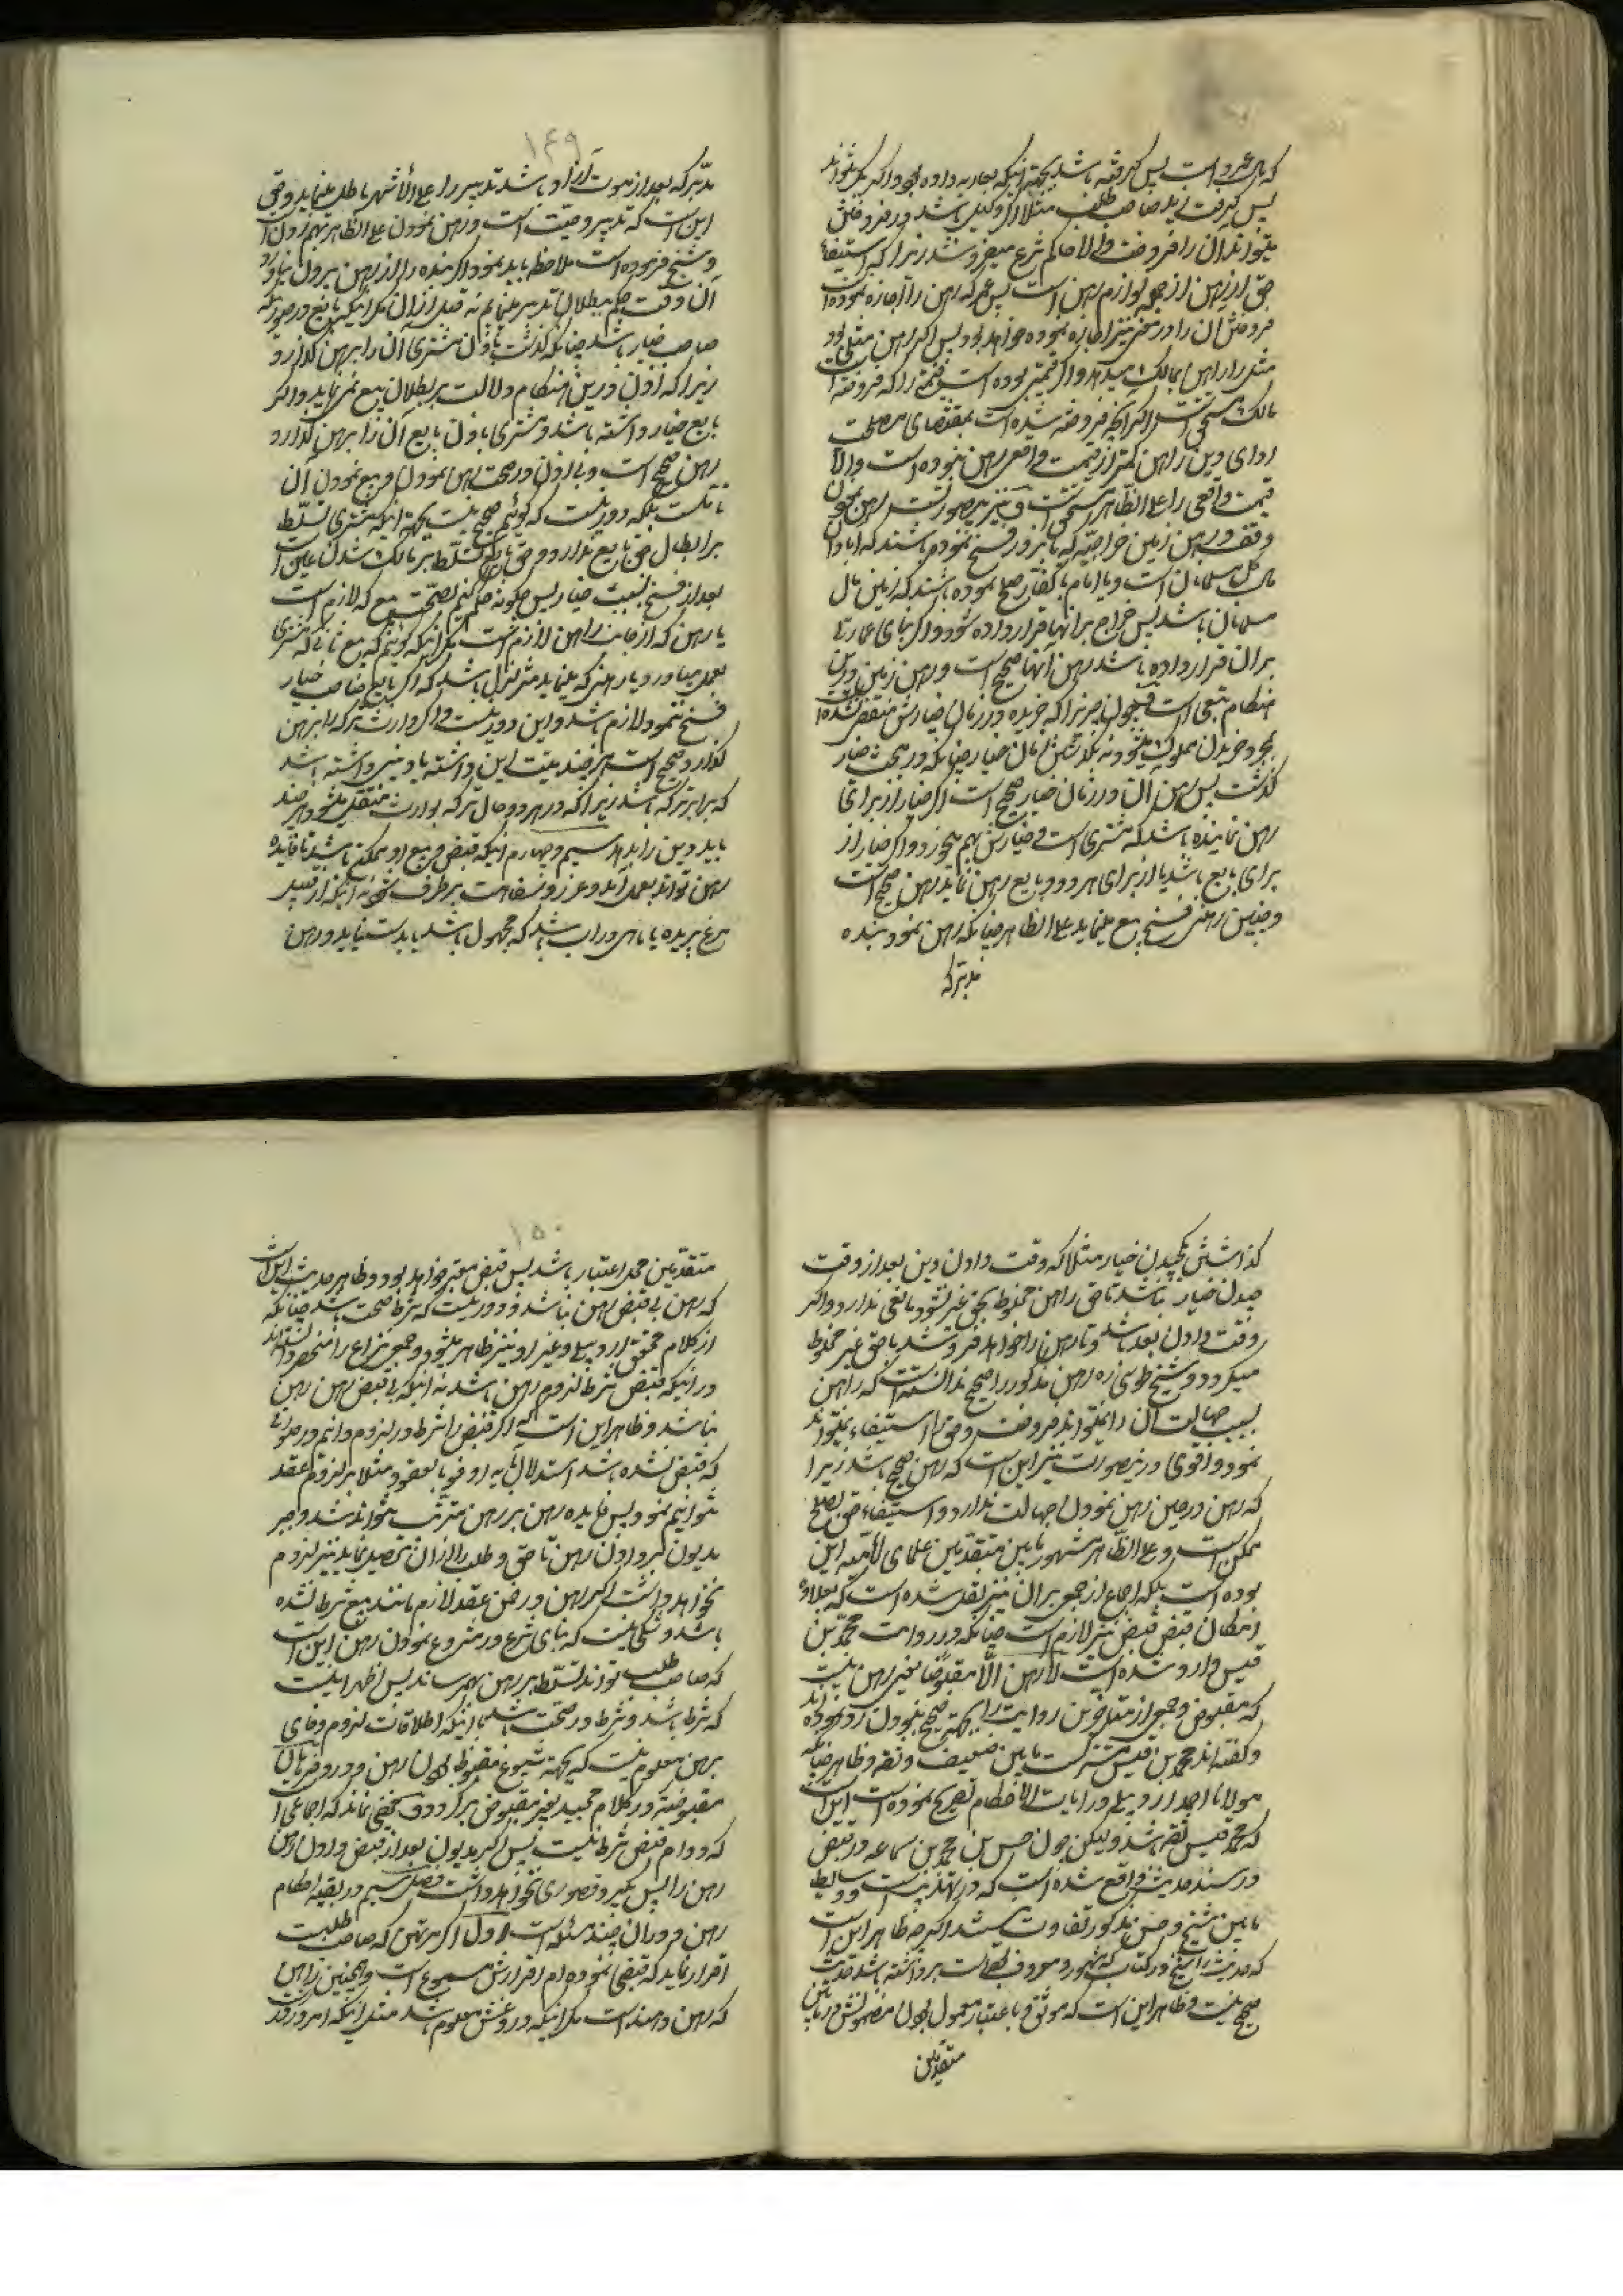 که مال عمرو است پس گرفته باشد بجهة اینکه بعاریه داده بود و اگر بکر نتواند
پس گرفت زید صاحب طلب مثلا اگر وکیل باشد در فروختن
میتواند آن را فروخت والا حاکم شرع میفروشد زیرا که استیفاء
حق از رهن از جمله لوازم رهن است پس عمرو که رهن را اجازه نموده است
فروختن آن را در معنی نیز اجازه نموده خواهد بود پس اگر رهن مثلی بود
مثل را راهن بمالک میدهد و اگر قیمتی بوده است قیمتی را که فروخته است
مالک مستحق است اگر آنچه فروخته شده است بمقتضای مصلحت
ادای دین راهن کمتر از قیمت واقعی رهن نبوده است والا
قیمت واقعی را علی الظاهر مستحق است و نیز بی صورتست رهن نمودن
وقف و رهن زمین خراجیه که بجبر و زور فتح نموده باشند که آبادان
مال کل مسلمانان است و یا امام با کفار صلح نموده باشند که زمین مال
مسلمانان باشد پس خراج بر آنها قرار داده شود و اگر بنای عمارتی
بر آن قرار داده باشد رهن آنها صحیح است و رهن زمین درین
هنگام تبعی است و چون چیزی را که خریده و زمان خیارش منقضی نشده است
بمجرد خریدن مملوک میشود نه بگذشتن زمان خیار چنانکه در مبحث خیار
گذشت پس رهن آن در زمان خیار صحیح است اگر خیار از برای
رهن نماینده باشد که مشتری است و خیارش بهم میخورد و اگر خیار از
برای بایع باشد یا از برای هر دو و بایع رهن نماید رهن صحیح است
و چنین رهنی فسخ بیع مینماید علی الظاهر چنانکه رهن نمودن بنده
مدبر که
۱۴۹
مدبر که بعد از موت آزاد باشد تدبیر را علی الأشهر باطل مینماید وقتی
این است که تدبیر وصیت است و رهن نمودن علی الظاهر بهم زدن است
و شیخ فرموده است ملاحظه باید نمود اگر بنده را از رهن بیرون نیاورد
آن وقت حکم ببطلان تدبیر مینمایم نه قبل از آن مگر اینکه بایع در صورتیکه
صاحب خیار باشد چنانکه گذشت باذن مشتری آن را برهن گذارد
زیرا که اذن درین هنگام دلالت بر بطلان بیع نمی نماید و اگر
بایع خیار داشته باشد و مشتری باذن بایع آن را برهن گذارد
رهن صحیح است و بی اذن در صحت رهن نمودن و بیع نمودن آن
تأملست بلکه دور نیست که گوئیم صحیح نیست بجهة اینکه مشتری تسلط
بر ابطال حق بایع ندارد و حق بایع تسلط بر مالک شدن عین است
بعد از فسخ بسبب خیار پس چگونه حکم کنیم بصحت بیع که لازم است
یا رهن که از جانب راهن لازم است مگر اینکه گوئیم که بیع ثانی که مشتری
بعمل میآورد و یا رهنی که مینماید متزلزل باشد که اگر بایع صاحب خیار
فسخ ننمود لازم باشد و این دور نیست و اگر وارث ترکه را برهن
گذارد صحیح است هر چند میت این داشته یا دینی داشته باشد
که برابر ترکه باشد زیرا که در هر دو حال ترکه بوارث منتقل میشود هر چند
باید دین را بدهد سیم و چهارم اینکه قبض و بیع او ممکن باشد تا فایده
رهن تواند بعمل آمد و غرر و سفاهت برطرف شود نه آنکه از قبیل
مرغ پریده یا ماهی در آب باشد که مجهول باشد یا بدست نیاید و رهن
گذاشتن بچیدن خیار مثلا که وقت دادن دین بعد از وقت
چیدن خیار نباشد تا حق راهن مخلوط بحق غیر نشود مانعی ندارد و اگر
وقت دادن بعد باشد و تا رهن را خواهد فروشد با حق غیر مخلوط
میگردد و شیخ طوسی ره رهن مذکور را صحیح ندانسته است که راهن
بسبب جهالت آن را نمیتواند فروخت و حق را استیفاء نمیتواند
نمود و اقوی درین صورت نیز این است که رهن صحیح باشد زیرا
که رهن در حین رهن نمودن جهالت ندارد و استیفاء حق بصلح
ممکن است و علی الظاهر مشهور مابین متقدمین علمای امامیه این
بوده است بلکه اجماع از جمعی بر آن نیز نقل شده است که بعلاوه
امکان قبض قبض نیز لازم است چنانکه در روایت محمد بن
قیس وارد شده است لا رهن الا مقبوضا یعنی رهن نیست
که مقبوض و جمعی از متأخرین روایت را بجهة صحیح نبودن رد نموده اند
و گفته اند محمد بن قیس مشترکست مابین ضعیف و ثقه و ظاهر چنانکه
مولانا احمد اردبیلی در آیات الاحکام تصریح نموده است این است
که محمد قیس ثقه باشد ولیکن چون حسن بن محمد بن سماعه در بعض
در سند حدیث واقع شده است که در تهذیب است و وسایط
مابین شیخ و حسن مذکور تفاوت نمیکند اگر چه ظاهر این است
که حدیث را شیخ در کتاب که مشهور و معروف بوده است برداشته باشد حدیث
صحیح نیست و ظاهر این است که موثق و باعتبار معمول بودن مضمونش در مابین
متقدمین
۱۵۰
متقدمین محل اعتبار باشد پس قبض معتبر خواهد بود و ظاهر حدیث این است
که رهن بی قبض رهن نباشد و دور نیست که شرط صحت باشد چنانکه
از کلام محقق اردبیلی و غیر او نیز ظاهر میشود و جمعی نزاع را منحصر دانسته اند
در اینکه قبض شرط لزوم رهن باشد نه اینکه بی قبض رهن رهن
نباشد و ظاهر این است که اگر قبض را شرط در لزوم دانیم در صورتی
که قبض نشده باشد استدلال بآیه اوفوا بالعقود مثلا بر لزوم عقد
نتوانیم نمود پس فایده رهن بر رهن مترتب نتواند شد و جبر
مدیون کردن در رهن تا حق و طلب را از آن تحصیل نماید نیز لزوم
نخواهد داشت اگر رهن در ضمن عقد لازم مانند بیع شرط نشده
باشد و شکی نیست که بنای شرع در مشروع نمودن رهن این است
که صاحب طلب تواند تسلط بر رهن بهم رساند پس اظهر اینست
که شرط باشد و شرط در صحت باشد با اینکه اطلاقات لزوم وفای
برهن معلوم نیست که بجهة شیوع مقبوض بودن رهن و ورود فرهان
مقبوضة در کلام مجید بغیر مقبوض برگردد و مخفی نماند که اجماعی است
که دوام قبض شرط نیست پس اگر مدیون بعد از قبض دادن رهن
رهن را پس بگیرد قصوری نخواهد داشت فصل سیم در بقیه احکام
رهن و در آن چند مسئله است اول اگر مرتهن که صاحب طلبست
اقرار نماید که قبض نموده ام اقرارش مسموع است و همچنین راهن
که رهن دهنده است مگر اینکه دروغش معلوم باشد مثل اینکه امروز گوید